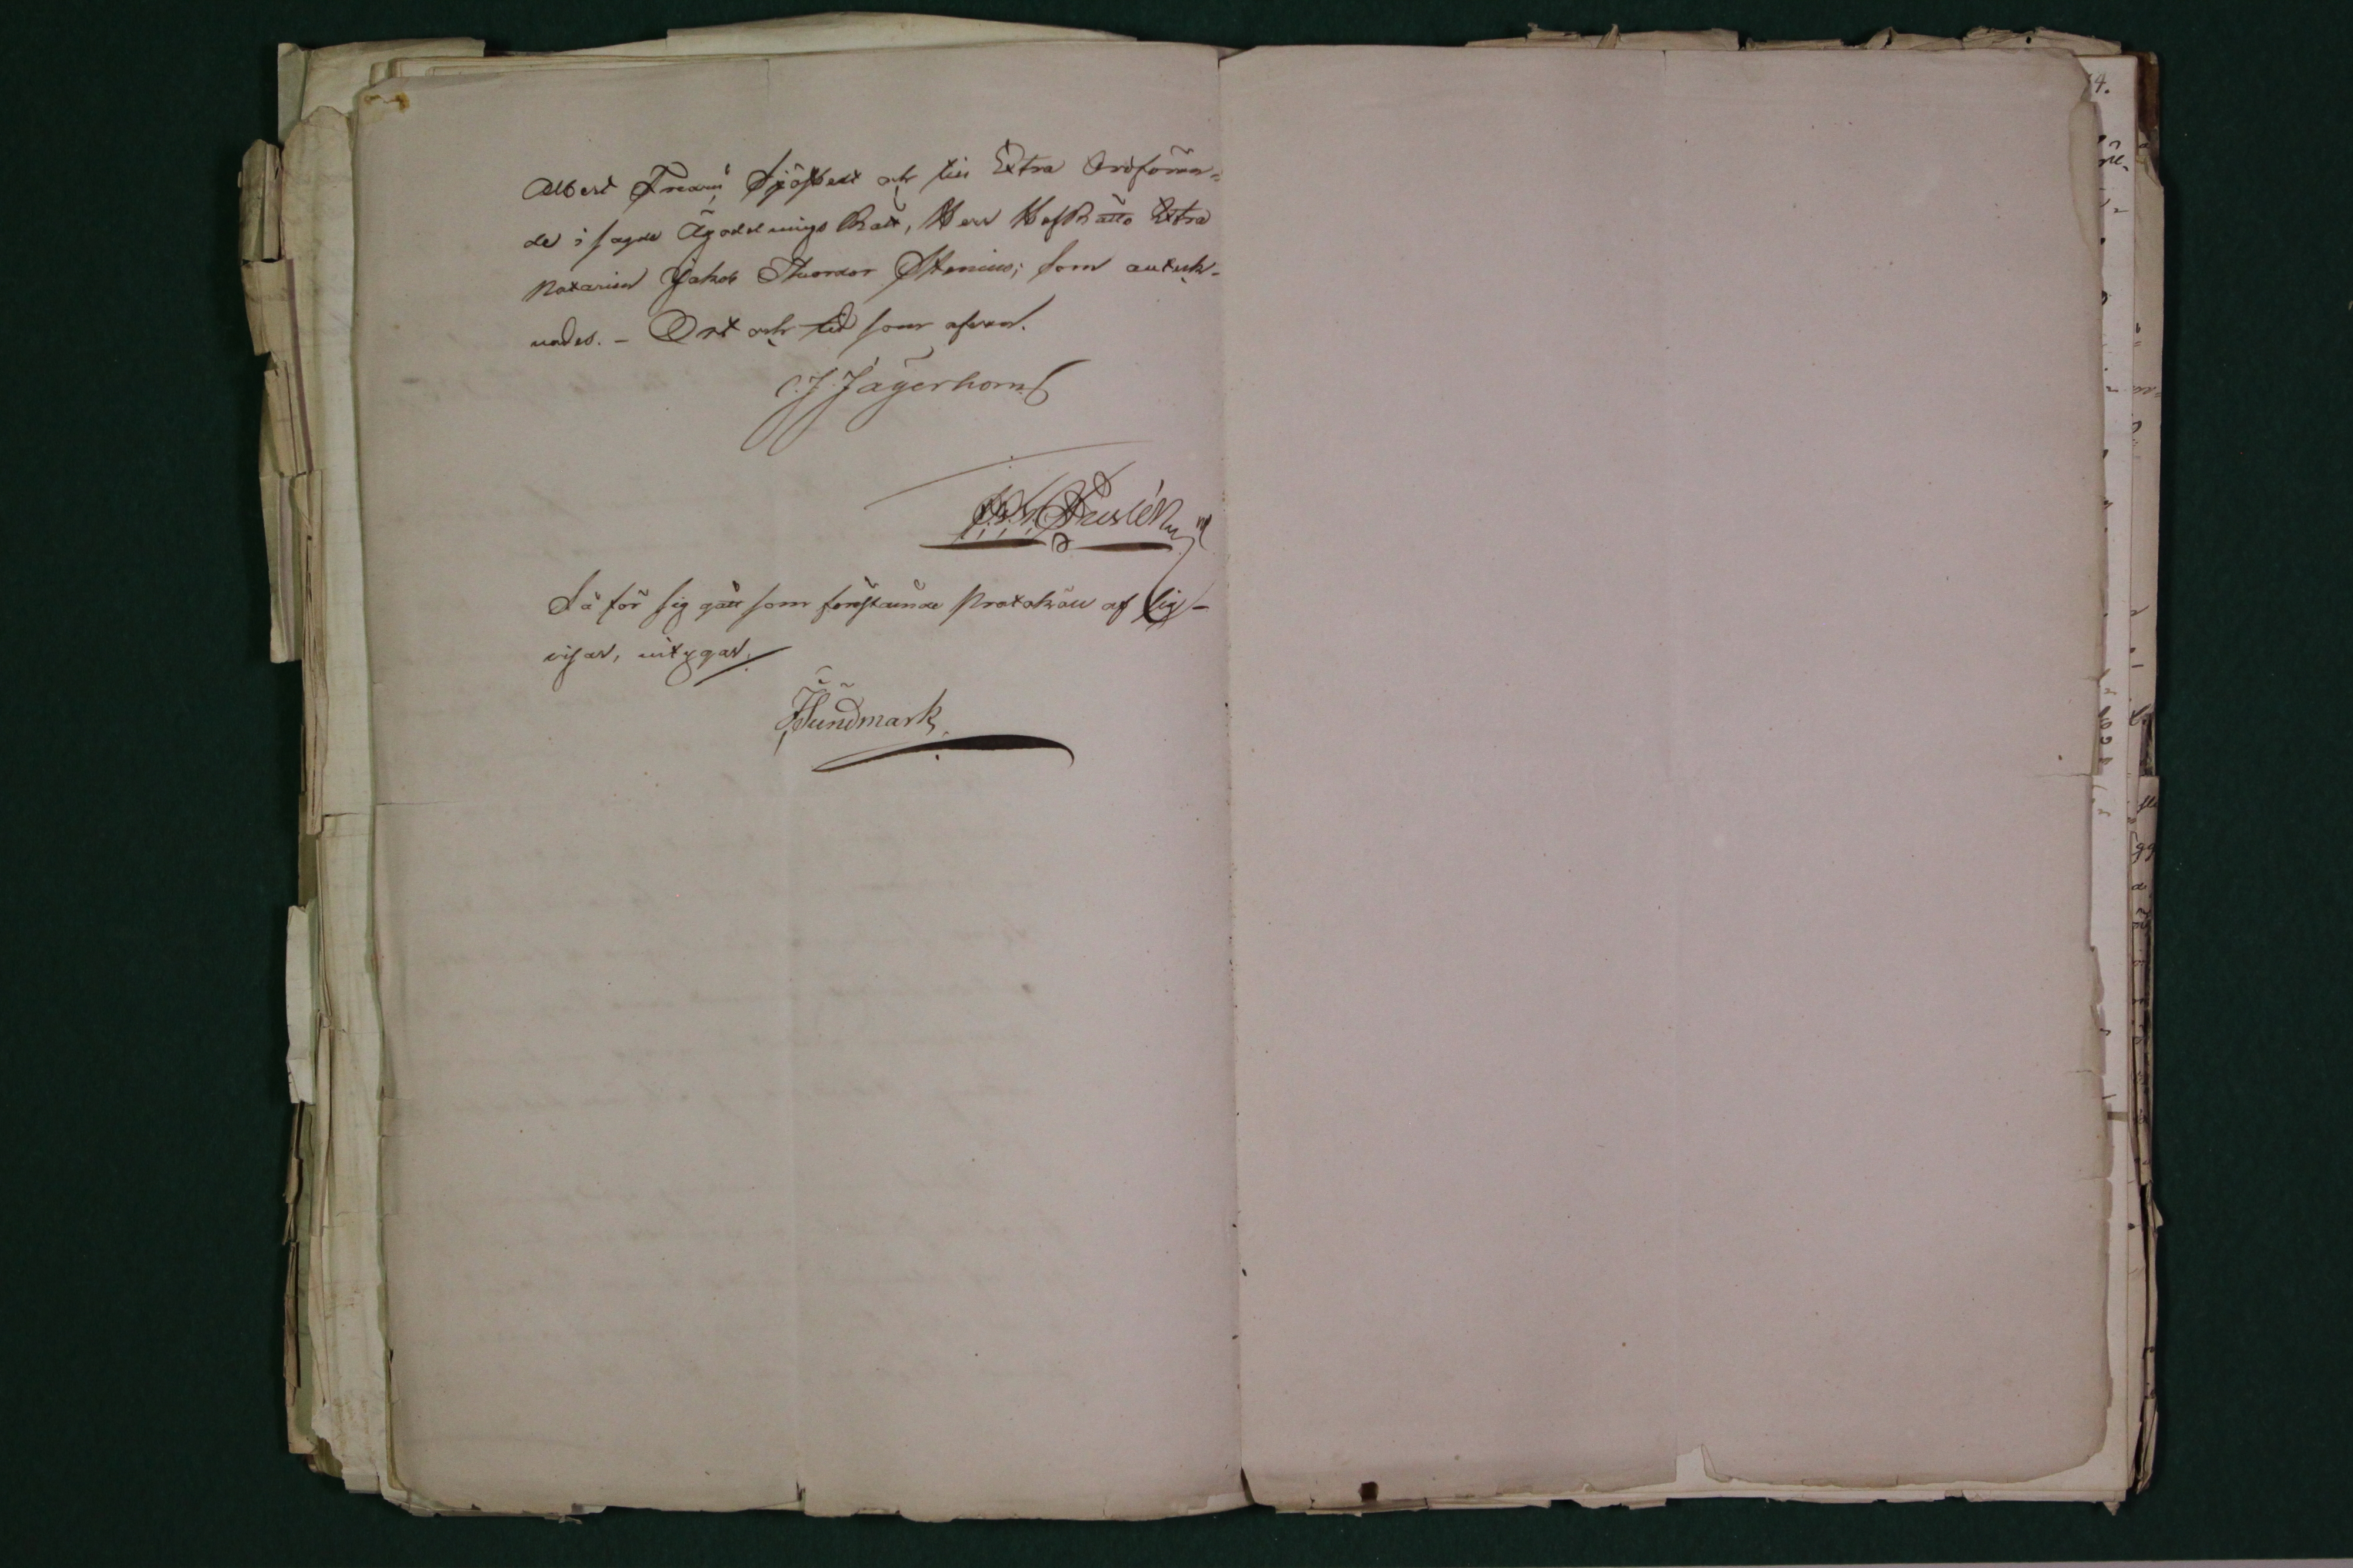 Albert Fredric Sjöstedt och till Extra Ordföran=
de i sagde Ägodelnings Rätt, Herr HofRätts Extra
Notarien Jakob Theodor Stenius; som anteck-
nades. – Ort och tid som ofvan.
C. J. Jägerhorn.
Så för sig gått som förestående Protokoll af sig-
visar, intygar.
Sundmark
4.